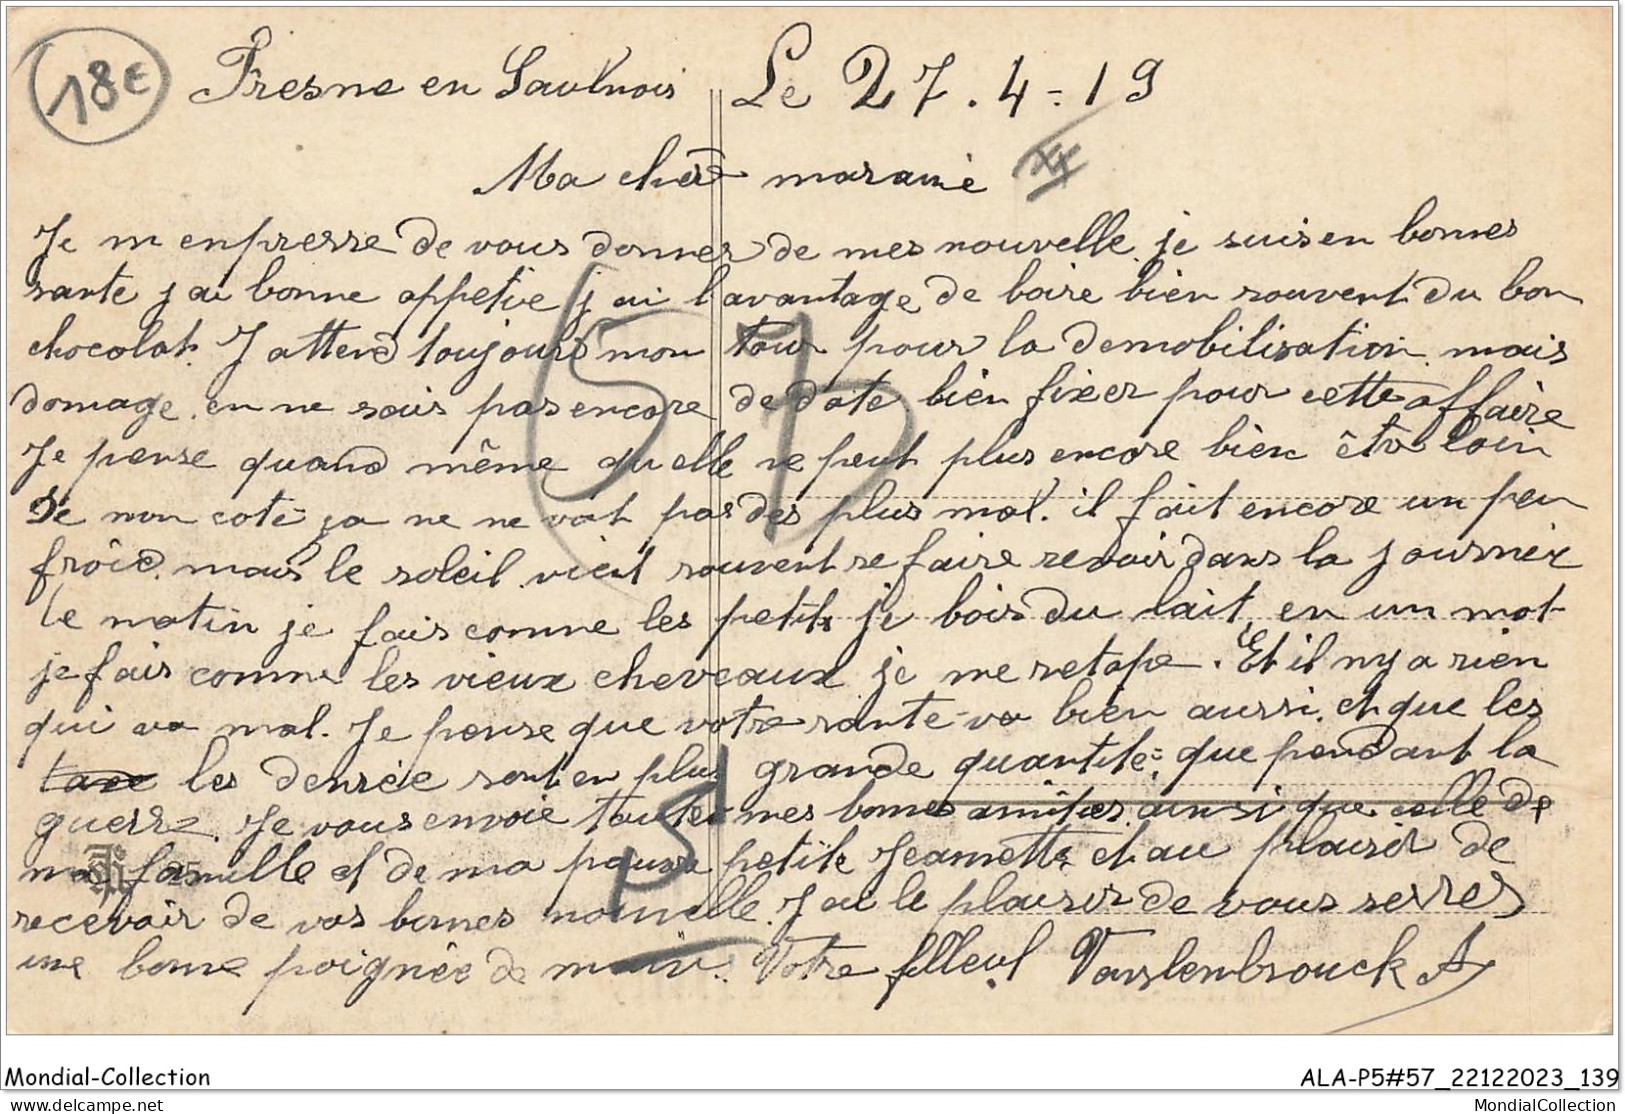 18€ Fresne en Saulnois Le 27.4-19
Ma chère maraine XX
Je m enpresse de vous donner de mes nouvelle. je suis en bonnes
sante j ai bonne appetie j ai l avantage de boire bien souvent du bon
chocolat. J attend toujours mon tour pour la demobilisation mais
domage. en ne sais pas encore de date bien fixer pour cette affaire
Je pense quand même qu elle ne peut plus encore bien être loin
De mon coté ja ne ne vat pas des plus mal. il fait encore un peu
froid. mais le soleil vient souvent se faire revoir dans la journeix
le matin je fais comme les petits je bois du lait, en un mot
je fais comme les vieux cheveaux je me retape. Et il ny a rien
qui va mal. Je pense que votre sante va bien aussi. et que les
les denrée sont en plus grande quantité que pendant la
guerre. Je vous envoie toutes mes bones amities. ainsi que celle de
ma famille et de ma pauvre petite Jeamette et au plaisir de
recevoir de vos bonnes nouvelle. J ai le plaisir de vous serrer
une bonne poignée de main. Votre filleul A
57
57
25
Mondial-Collection
ALA-P5#57_22122023_139
delcampe.net
MondialCollection